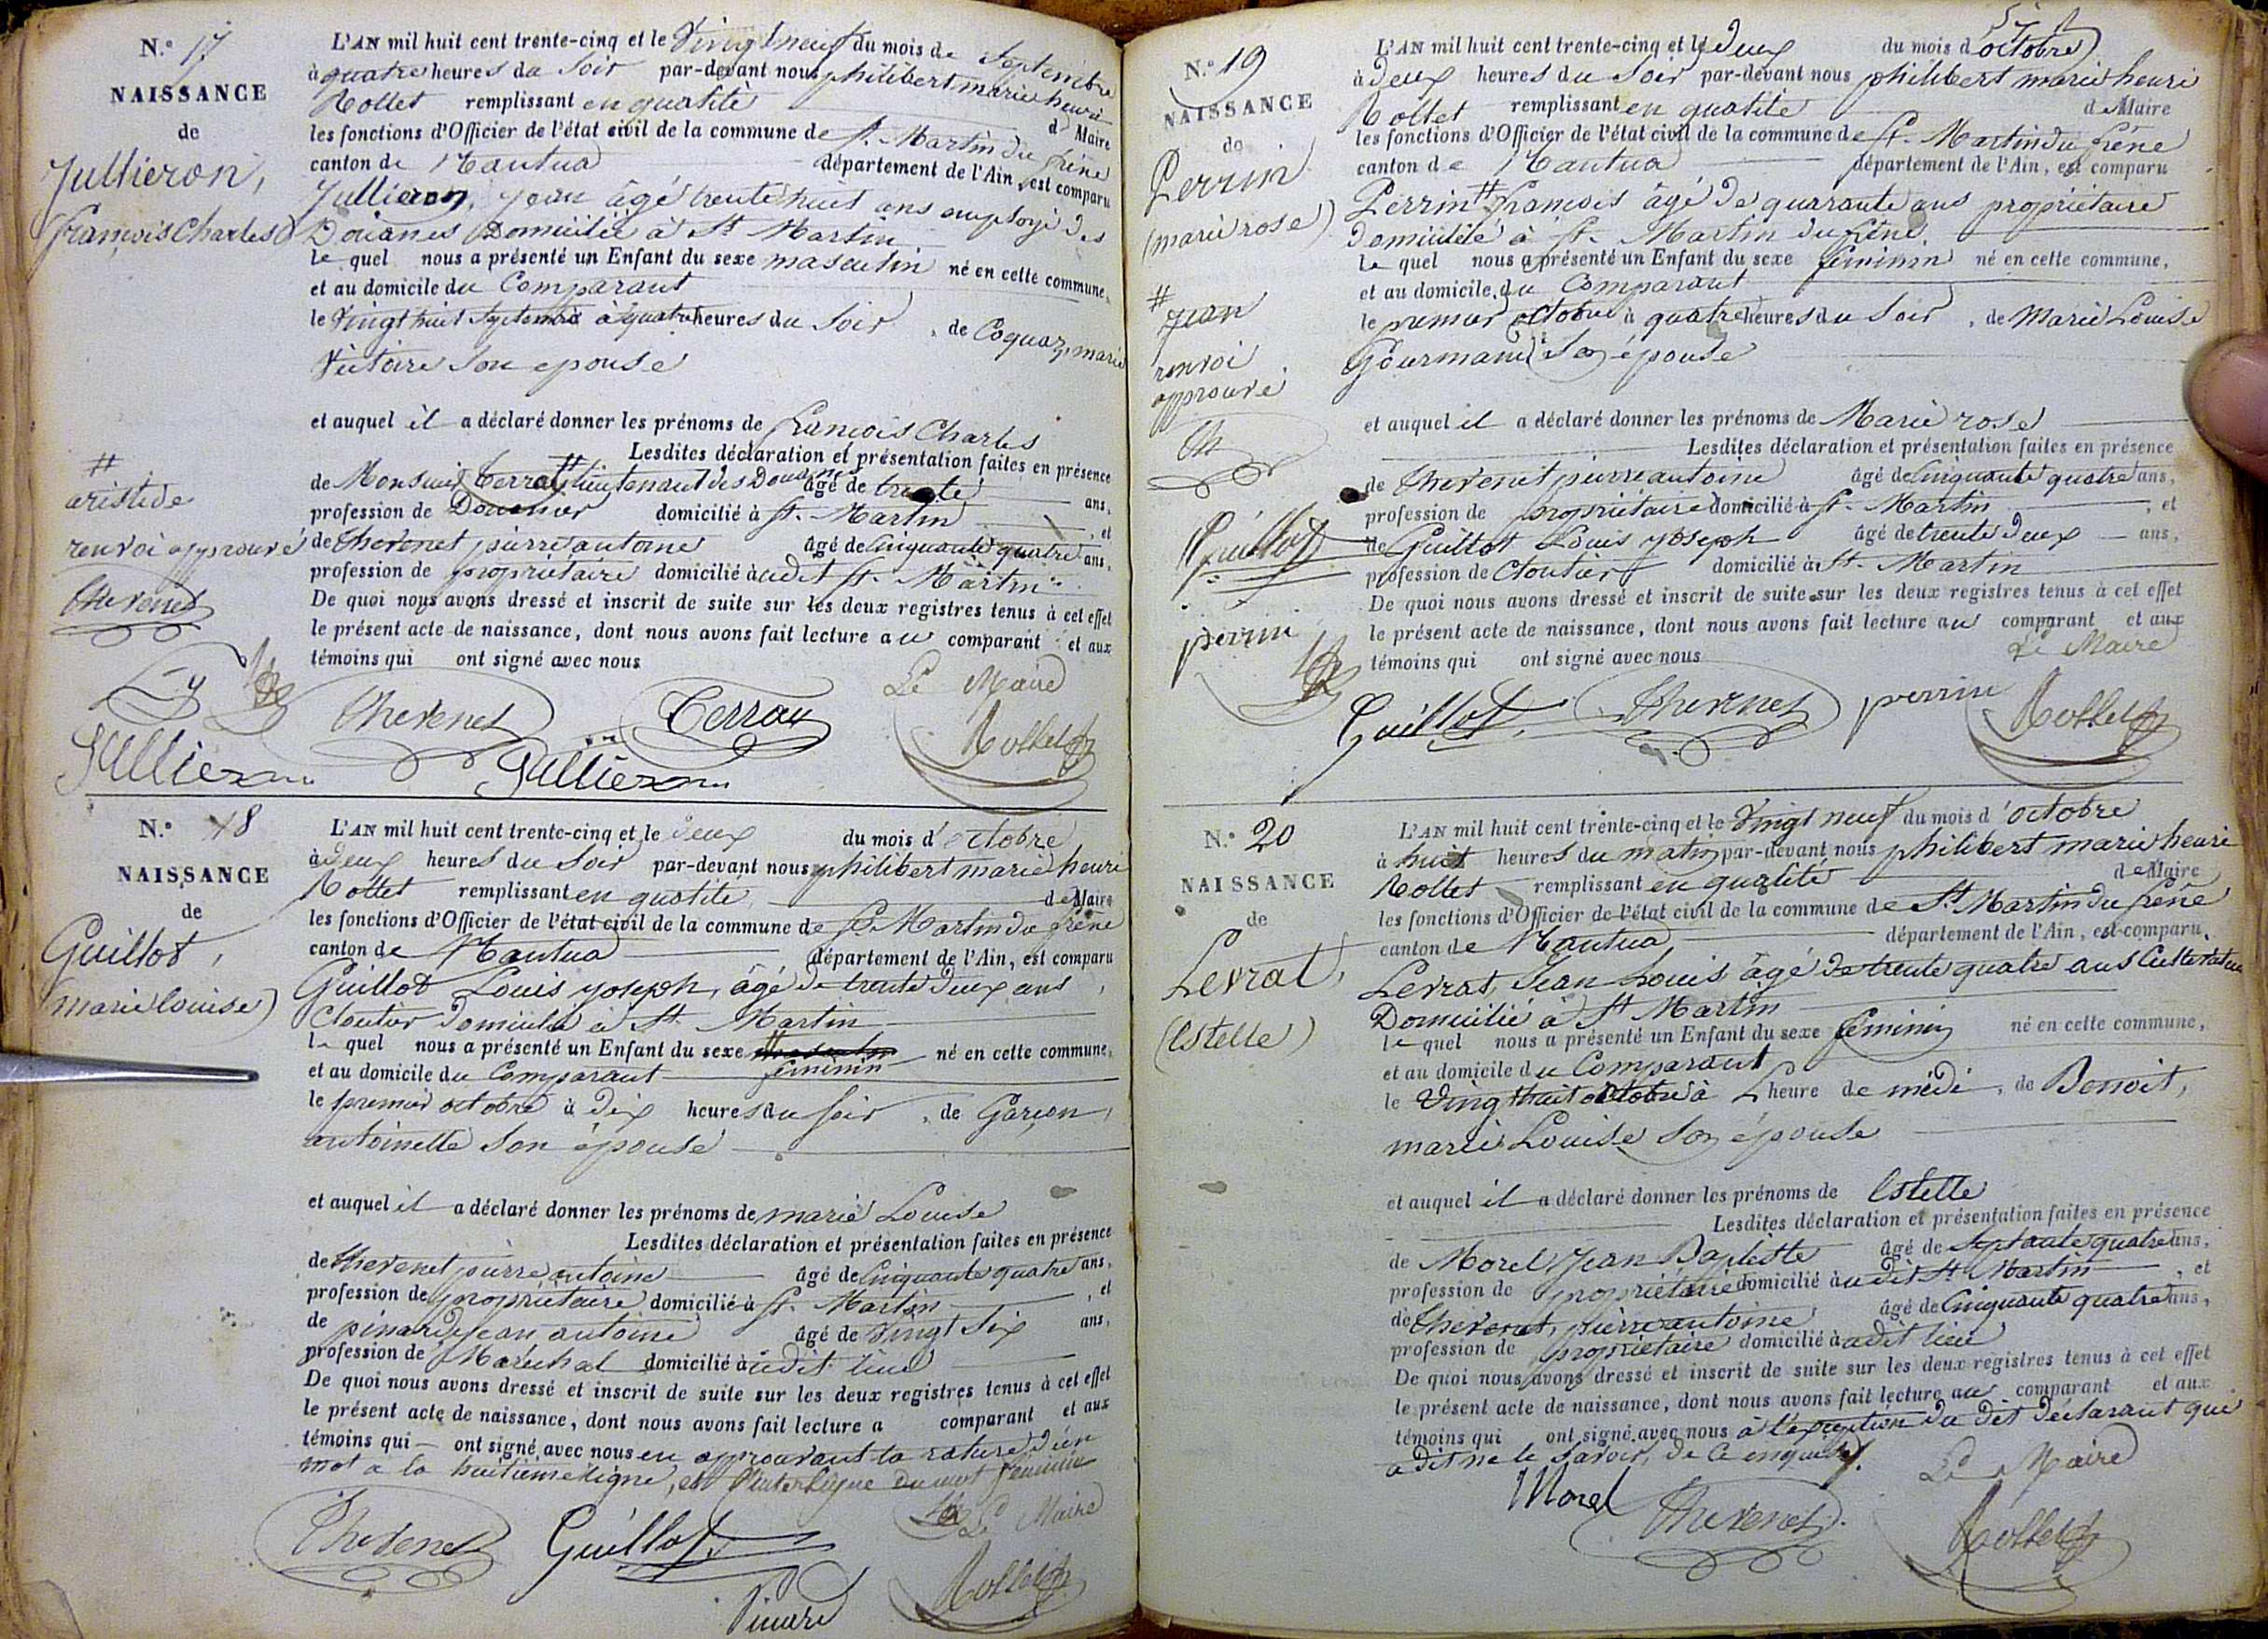 N.° 17
NAISSANCE
de
Jullieron,
(françois Charles)
L'AN mil huit cent trente-cinq et le Vingt neuf du mois de Septembre
à quatre heures du Soir par-devant nous philibert marie henri
Rollet remplissant en qualité de Maire
les fonctions d'Officier de l'état civil de la commune de St. Martin du frêne
canton de Nantua département de l'Ain, est comparu
Jullieron, jean âgé trente huit ans employé des
Douanes Domicilié à St Martin
le quel nous a présenté un Enfant du sexe masculin né en cette commune,
et au domicile du Comparant
le Vingt huit Septembre à quatre heures du Soir, de Coquaz, marie
Victoire Son epouse
et auquel il a déclaré donner les prénoms de francois Charles
Lesdites déclaration et présentation faites en présence
de Monsieur Terray # lieutenant des Douanes âgé de trente ans,
profession de Douanier domicilié à St. Martin, et
de Thevenet pierre antoine âgé de Cinquante quatre ans,
profession de propriétaire domicilié audit St. Martin
De quoi nous avons dressé et inscrit de suite sur les deux registres tenus à cet effet
le présent acte de naissance, dont nous avons fait lecture au comparant et aux
témoins qui ont signé avec nous
#
aristide
renvoi approuvé
Thevenet
Le Maire
Thevenet Terray Rollet
Jullieron Jullieron
N.° 18
NAISSANCE
de
Guillot,
(marie louise)
L'AN mil huit cent trente-cinq et le deux du mois d'octobre
à deux heures du Soir par-devant nous philibert marie henri
Rollet remplissant en qualité de Maire
les fonctions d'Officier de l'état civil de la commune de St. Martin du frêne
canton de Nantua département de l'Ain, est comparu
Guillot Louis joseph, âgé de trente deux ans,
Cloutier domicilié à St. Martin
le quel nous a présenté un Enfant du sexe masculin né en cette commune,
féminin
et au domicile du Comparant
le premier octobre à dix heures du soir, de Garçon,
antoinette son épouse
et auquel il a déclaré donner les prénoms de marie Louise
Lesdites déclaration et présentation faites en présence
de Thevenet pierre antoine âgé de Cinquante quatre ans,
profession de propriétaire domicilié à St. Martin, et
de pinard jean antoine âgé de Vingt Six ans,
profession de Maréchal domicilié audit lieu
De quoi nous avons dressé et inscrit de suite sur les deux registres tenus à cet effet
le présent acte de naissance, dont nous avons fait lecture a comparant et aux
témoins qui ont signé avec nous en approuvant la rature d'un
mot à la huitieme ligne, et l'interligne du mot féminin
Le Maire
Thevenet Guillot Rollet
Pinard
N.° 19
NAISSANCE
de
Perrin
(marie rose)
L'AN mil huit cent trente-cinq et le deux du mois d'octobre
à deux heures du Soir par-devant nous philibert marie henri
Rollet remplissant en qualité de Maire
les fonctions d'Officier de l'état civil de la commune de St. Martin du frêne
canton de Nantua département de l'Ain, est comparu
Perrin # francois âgé de quarante ans propriétaire
domicilié à St. Martin du frêne
le quel nous a présenté un Enfant du sexe féminin né en cette commune,
et au domicile du Comparant
le premier octobre à quatre heures du Soir, de Marie Louise
Gourmand Son épouse
et auquel il a déclaré donner les prénoms de Marie rose
Lesdites déclaration et présentation faites en présence
de Thevenet pierre antoine âgé de Cinquante quatre ans,
profession de propriétaire domicilié à St. Martin, et
de Guillot Louis joseph âgé de trente deux ans,
profession de Cloutier domicilié à St. Martin
De quoi nous avons dressé et inscrit de suite sur les deux registres tenus à cet effet
le présent acte de naissance, dont nous avons fait lecture au comparant et aux
témoins qui ont signé avec nous
#
jean
renvoi
approuvé
Th
Guillot
perrin
Le Maire
Guillot Thevenet perrin Rollet
N.° 20
NAISSANCE
de
Levrat,
(Estelle)
L'AN mil huit cent trente-cinq et le Vingt neuf du mois d'octobre
à huit heures du matin par-devant nous philibert marie henri
Rollet remplissant en qualité de Maire
les fonctions d'Officier de l'état civil de la commune de St. Martin du frêne
canton de Nantua département de l'Ain, est comparu
Levrat, Jean Louis âgé de trente quatre ans Cultivateur
Domicilié à St Martin
le quel nous a présenté un Enfant du sexe féminin né en cette commune,
et au domicile du Comparant
le Vingt huit octobre à L'heure de midi, de Benoit,
marie Louise Son épouse
et auquel il a déclaré donner les prénoms de Estelle
Lesdites déclaration et présentation faites en présence
de Morel Jean Baptiste âgé de Septante quatre ans,
profession de propriétaire domicilié audit St Martin, et
de Thevenet, pierre antoine âgé de Cinquante quatre ans,
profession de propriétaire domicilié audit lieu
De quoi nous avons dressé et inscrit de suite sur les deux registres tenus à cet effet
le présent acte de naissance, dont nous avons fait lecture au comparant et aux
témoins qui ont signé avec nous à l'exception du dit déclarant qui
a dit ne le savoir, de ce enquis.
Le Maire
Morel Thevenet Rollet